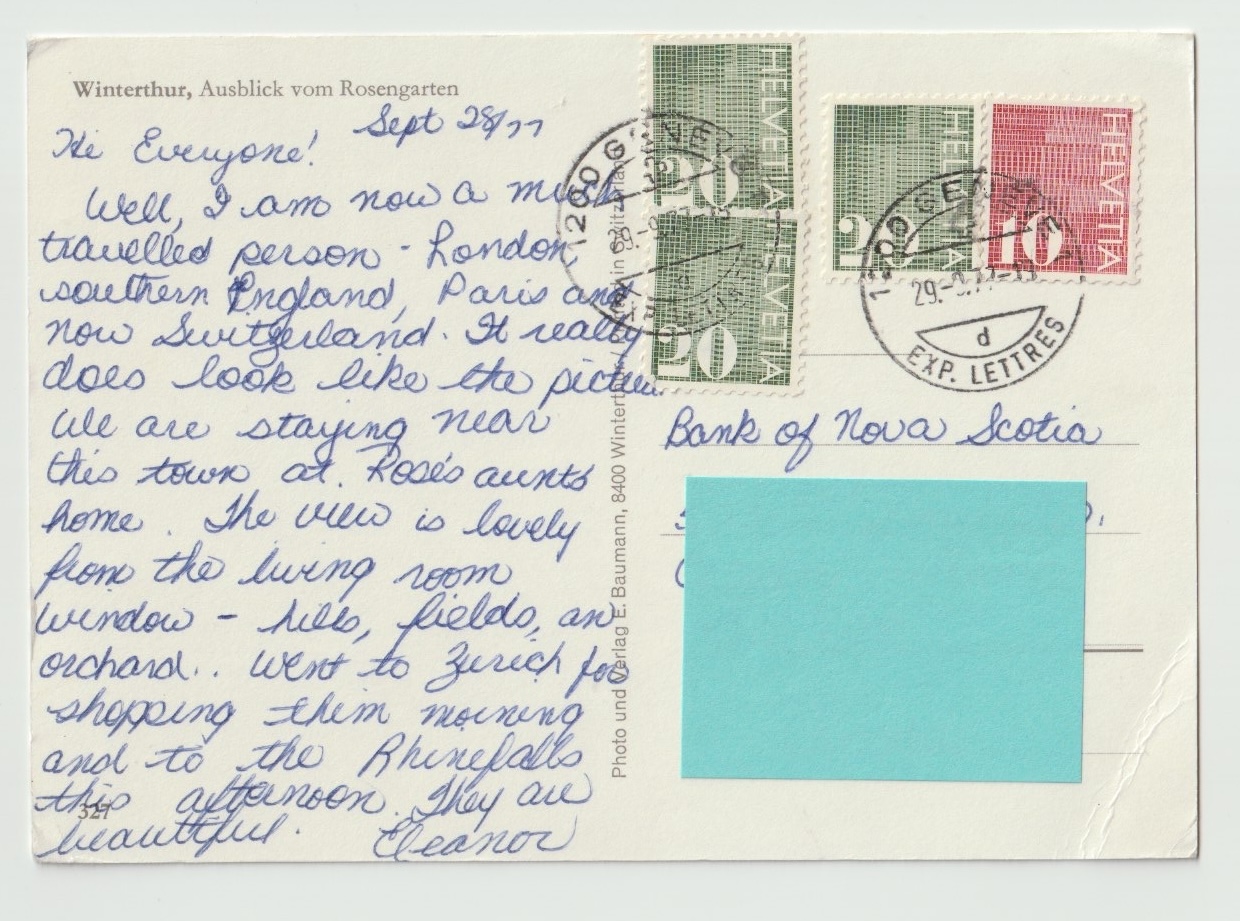 Winterthur, Ausblick vom Rosengarten
Sept 28/77
Hi Everyone!
Well, I am now a much
travelled person - London,
southern England, Paris and
now Switzerland. It really
does look like the picture.
We are staying near
this town at. Rose's aunt's
home. The view is lovely
from the living room
window - hills, fields, an
orchard.. Went to Zurich for
shopping this morning
and to the Rhinefalls
this afternoon. They are
beautiful. Eleanor
327
Photo und Verlag E. Baumann, 8400 Winterthur / in Switzerland
HELVETIA
20
HELVETIA
20
HELVETIA
20
HELVETIA
10
1200 GENEVE
EXP. LETTRES
1200 GENEVE
29.-9.77-
d
EXP. LETTRES
Bank of Nova Scotia